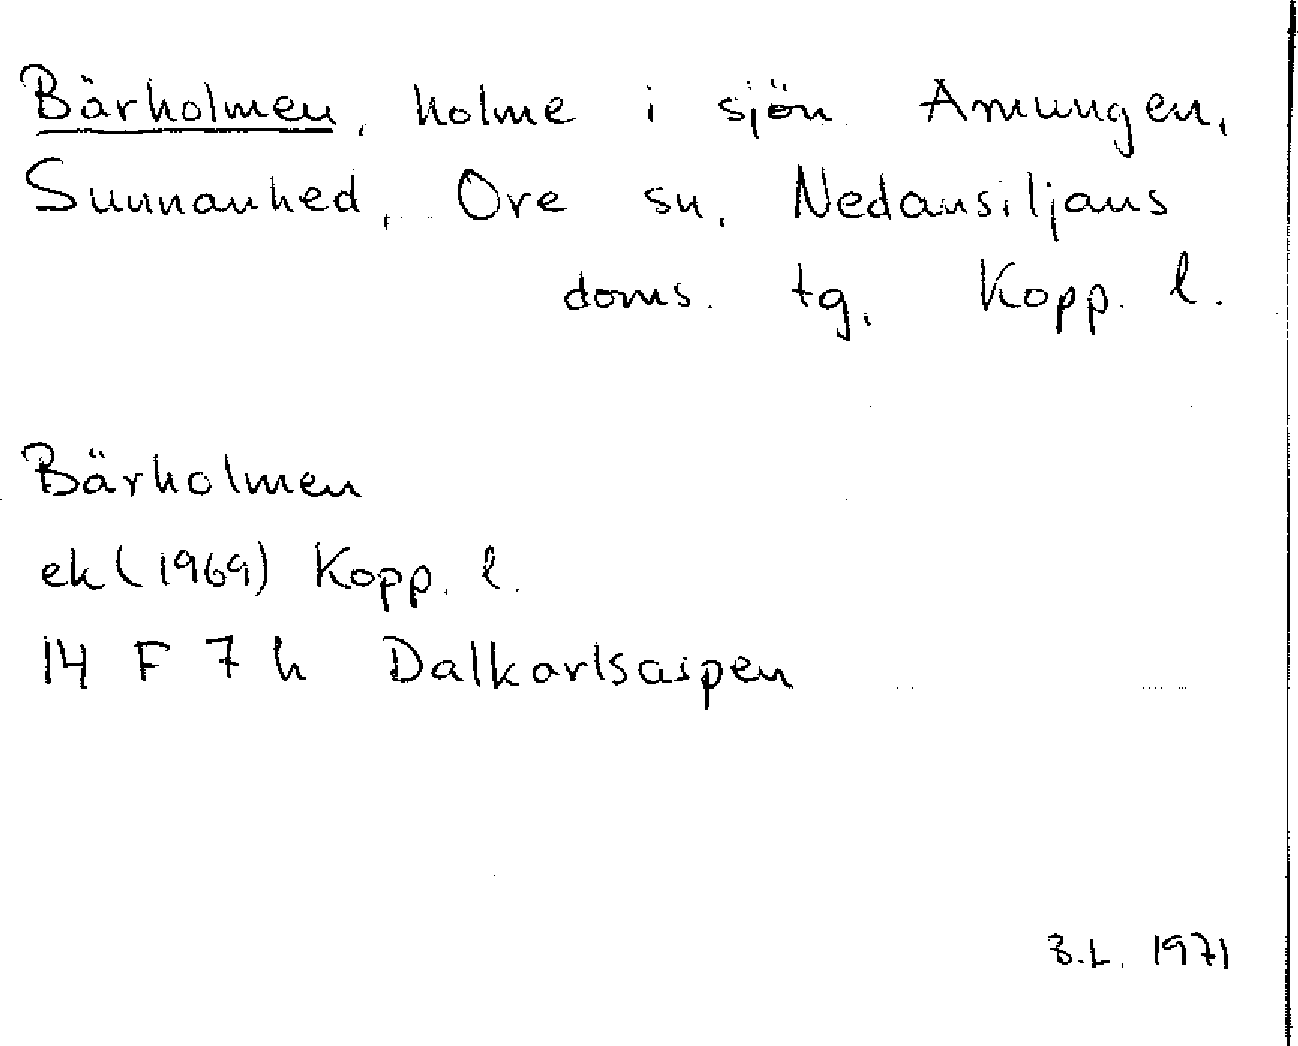 Bärholmen, holme i sjön Amungen,
Sunnanhed, Ore sn, Nedansiljans
doms. tg, Kopp. l.
Bärholmen
ek (1969) Kopp. l.
14 F 7 h Dalkarlsaspen
B.L. 1971